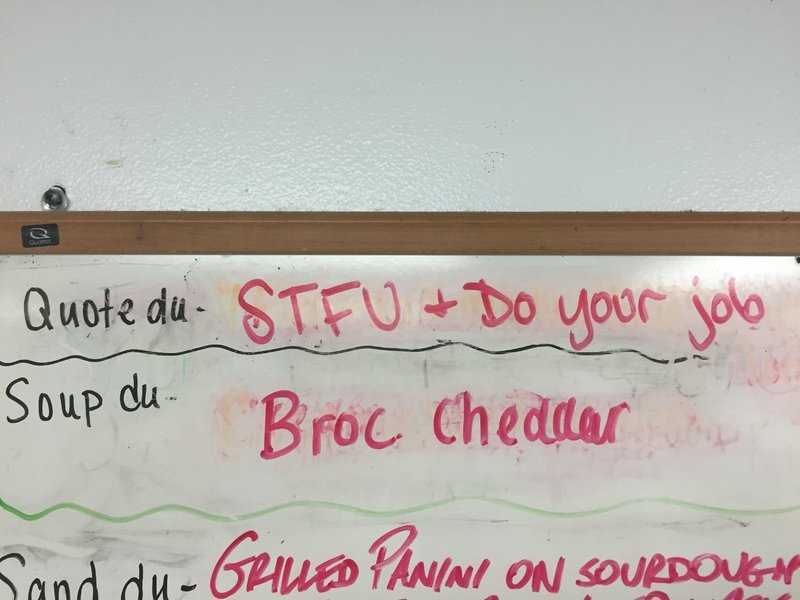 Q
Quartet
Quote du - STFU + Do your job
Soup du - Broc. Cheddar
Sand du - GRILLED PANINI ON SOURDOUGH